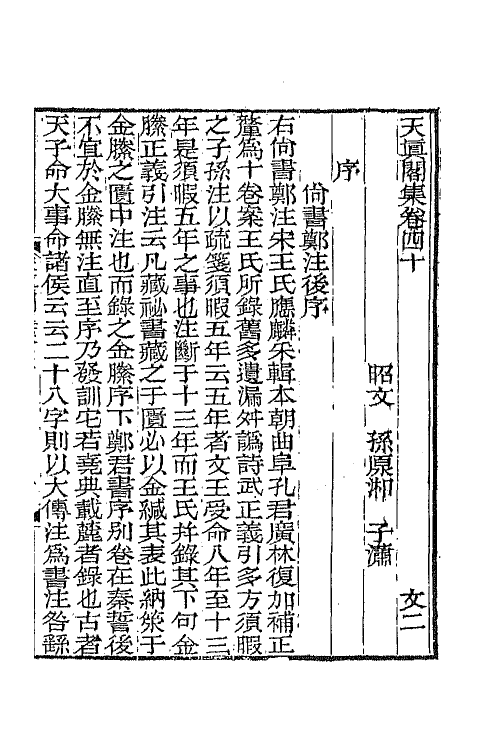 天眞閣集卷四十　文二
昭文　孫原湘　子瀟
序
尙書鄭注後序
右尙書鄭注宋王氏應麟采輯本朝曲阜孔君廣林復加補正
釐爲十卷案王氏所錄舊多遺漏舛譌詩武正義引多方須暇
之子孫注以疏箋須暇五年云五年者文王受命八年至十三
年是須暇五年之事也注斷于十三年而王氏幷錄其下句金
縢正義引注云凡藏祕書藏之于匱必以金緘其表此納策于
金縢之匱中注也而錄之金縢序下鄭君書序別卷在秦誓後
不宜於金縢無注直至序乃發訓它若堯典載麓者錄也古者
天子命大事命諸侯云云二十八字則以大傳注爲書注咎繇